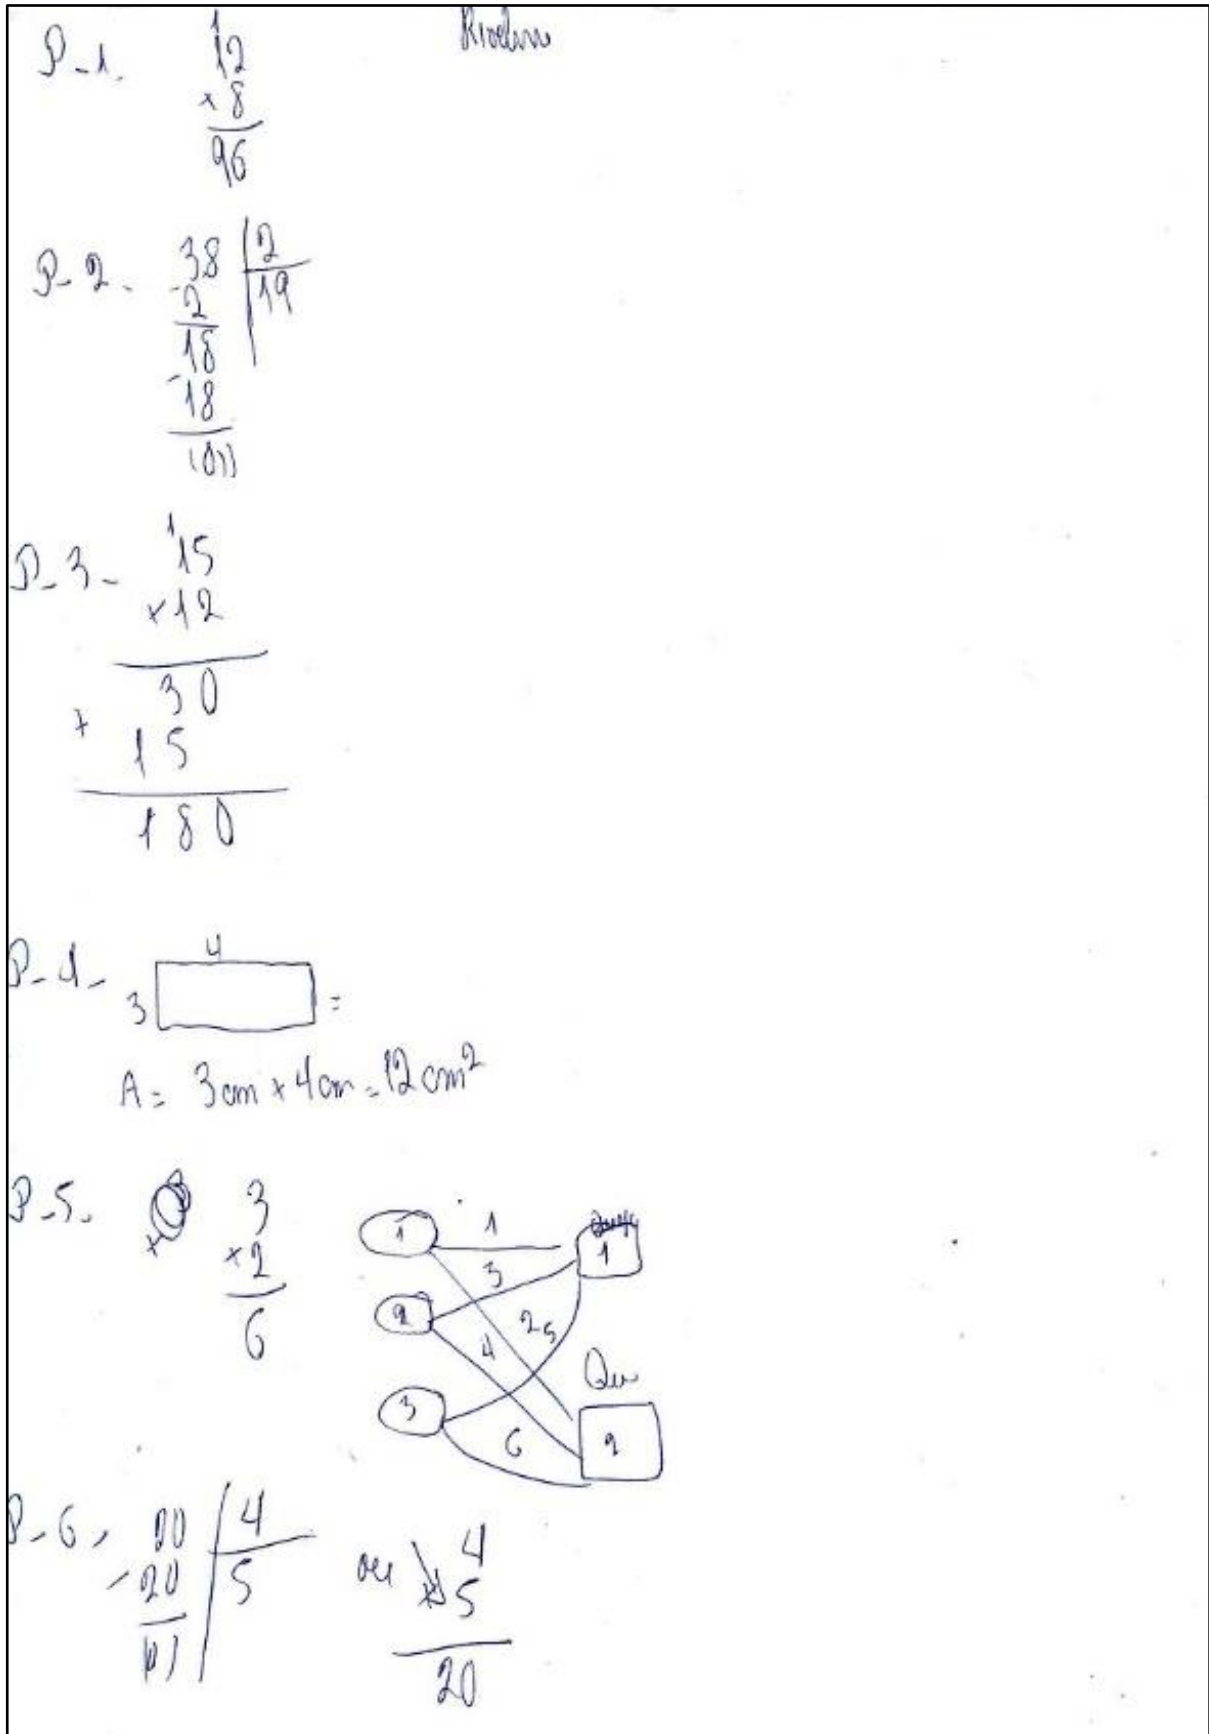 P-1. 12
1
× 8
96
P-2. 38 | 2
- 2 | 19
18
- 18
(0))
P-3- 15
1
×12
30
+
15
180
P-4- 4
3 =
A= 3cm × 4cm = 12 cm²
P-5. 3
×
×2
6
1 1 1
3
2 2 5
4
Qu
3 6 2
P-6- 20 | 4
-20 | 5
(0)
ou 4
× 5
20